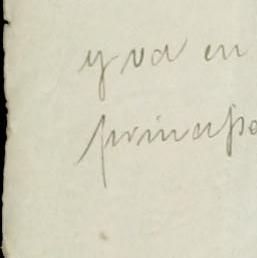 y va en
principa